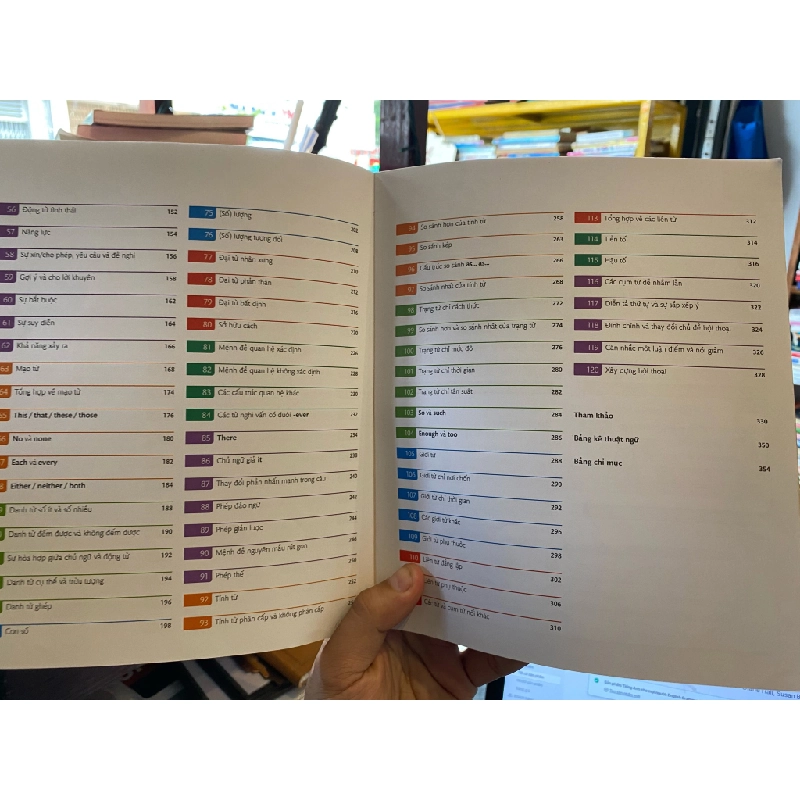 56 Động từ tình thái 152
57 Năng lực 154
58 Sự xin/cho phép, yêu cầu và đề nghị 156
59 Gợi ý và cho lời khuyên 158
60 Sự bắt buộc 162
61 Sự suy diễn 164
62 Khả năng xảy ra 166
63 Mạo từ 168
64 Tổng hợp về mạo từ 174
65 This / that / these / those 176
66 No và none 180
67 Each và every 182
68 Either / neither / both 184
Danh từ số ít và số nhiều 188
Danh từ đếm được và không đếm được 190
Sự hòa hợp giữa chủ ngữ và động từ 192
Danh từ cụ thể và trừu tượng 194
Danh từ ghép 196
Con số 198
75 (Số) lượng
76 (Số) lượng tương đối 202
77 Đại từ nhân xưng 210
78 Đại từ phản thân 212
79 Đại từ bất định 216
80 Sở hữu cách
81 Mệnh đề quan hệ xác định 226
82 Mệnh đề quan hệ không xác định 228
83 Các cấu trúc quan hệ khác
84 Các từ nghi vấn có đuôi -ever
85 There 234
86 Chủ ngữ giả it
87 Thay đổi phần nhấn mạnh trong câu 240
88 Phép đảo ngữ
89 Phép giản lược
90 Mệnh đề nguyên mẫu rút gọn
91 Phép thế
92 Tính từ
93 Tính từ phân cấp và không phân cấp
94 So sánh hơn của tính từ 258
95 So sánh kép 263
96 Cấu trúc so sánh as... as... 266
97 So sánh nhất của tính từ 268
98 Trạng từ chỉ cách thức 272
99 So sánh hơn và so sánh nhất của trạng từ 274
100 Trạng từ chỉ mức độ 276
101 Trạng từ chỉ thời gian 280
102 Trạng từ chỉ tần suất 282
103 So và such 284
104 Enough và too 286
105 Giới từ 288
106 Giới từ chỉ nơi chốn 290
107 Giới từ chỉ thời gian 292
108 Các giới từ khác 296
109 Giới từ phụ thuộc 298
110 Liên từ đẳng lập 302
Liên từ phụ thuộc 306
Các từ và cụm từ nối khác 310
113 Tổng hợp và các liên từ 312
114 Tiền tố 314
115 Hậu tố 316
116 Các cụm từ dễ nhầm lẫn 320
117 Diễn tả thứ tự và sự sắp xếp ý 322
118 Đính chính và thay đổi chủ đề hội thoại 324
119 Cân nhắc một luận điểm và nói giảm 326
120 Xây dựng hội thoại 328
Tham khảo 330
Bảng kê thuật ngữ 350
Bảng chỉ mục 354